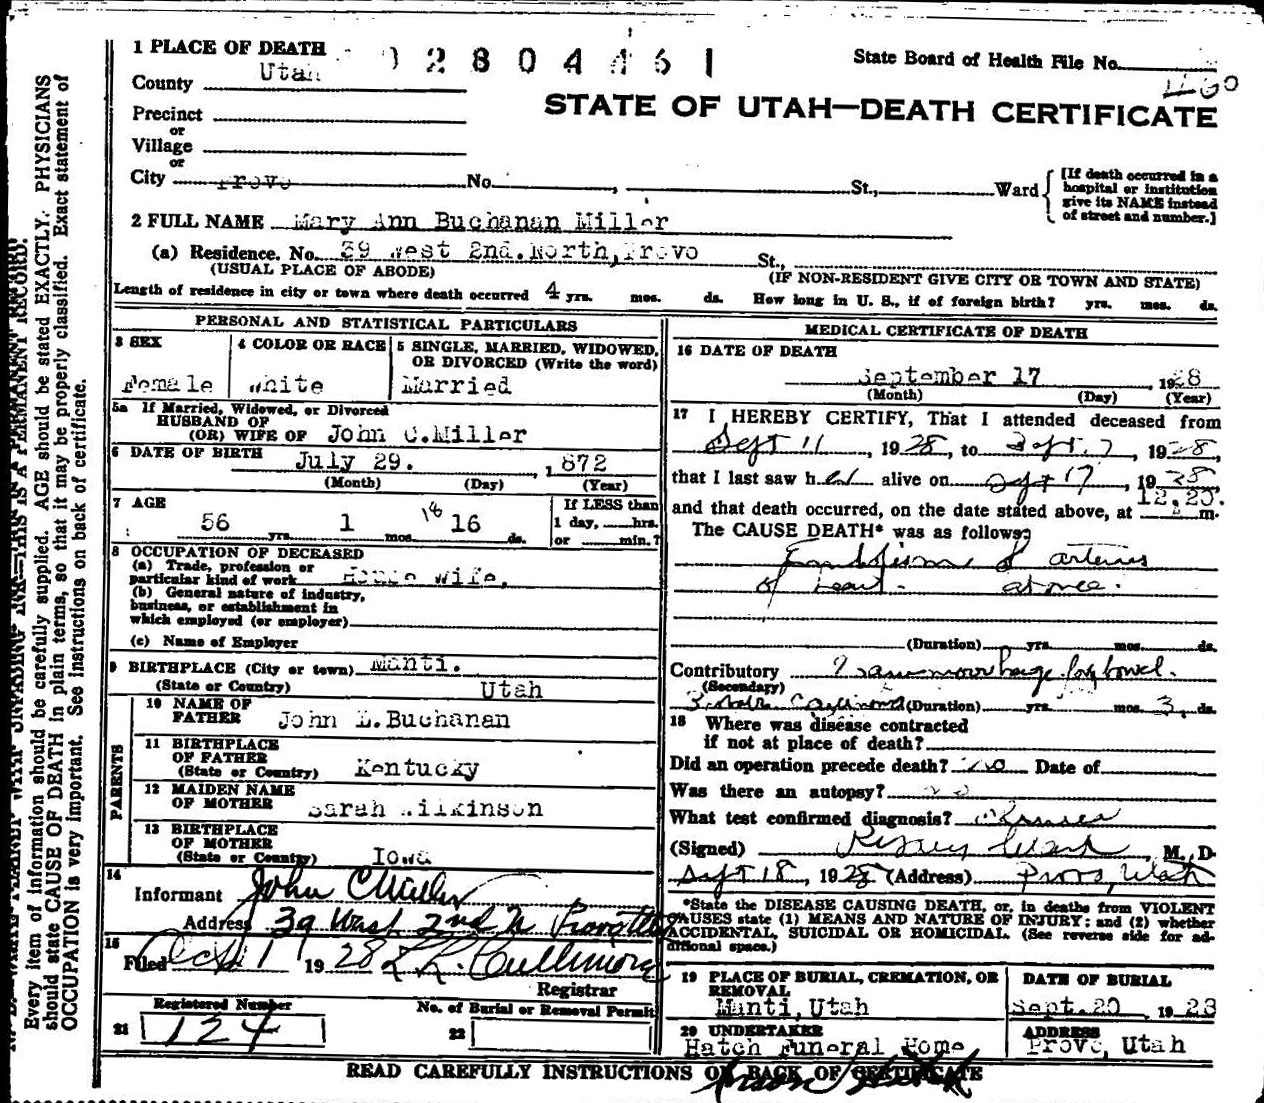 1 PLACE OF DEATH
0 2 8 0 4 4 6 1
State Board of Health File No.
County Utah
1160
STATE OF UTAH—DEATH CERTIFICATE
Precinct
or
Village
or
City Provo No. , St., Ward
[If death occurred in a hospital or institution give its NAME instead of street and number.]
2 FULL NAME Mary Ann Buchanan Miller
(a) Residence. No. 39 West 2nd. North, Provo St.,
(USUAL PLACE OF ABODE) (IF NON-RESIDENT GIVE CITY OR TOWN AND STATE)
Length of residence in city or town where death occurred 4 yrs. mos. ds. How long in U. S., if of foreign birth? yrs. mos. ds.
PERSONAL AND STATISTICAL PARTICULARS
3 SEX
Female
4 COLOR OR RACE
White
5 SINGLE, MARRIED, WIDOWED, OR DIVORCED (Write the word)
Married
5a If Married, Widowed, or Divorced
HUSBAND OF
(OR) WIFE OF John C. Miller
6 DATE OF BIRTH July 29. , 1872
(Month) (Day) (Year)
7 AGE
56 yrs. 1 mos. 18 16 ds.
If LESS than
1 day, hrs.
or min.?
8 OCCUPATION OF DECEASED
(a) Trade, profession or
particular kind of work House wife.
(b) General nature of industry,
business, or establishment in
which employed (or employer)
(c) Name of Employer
9 BIRTHPLACE (City or town) Manti.
(State or Country) Utah
PARENTS
10 NAME OF
FATHER John L. Buchanan
11 BIRTHPLACE
OF FATHER
(State or Country) Kentucky
12 MAIDEN NAME
OF MOTHER Sarah Wilkinson
13 BIRTHPLACE
OF MOTHER
(State or Country) Iowa
14
Informant John C Miller
Address 39 West 2nd N Provo Utah
15
Filed Oct 1 1928
Registrar
Registered Number
21 124
No. of Burial or Removal Permit
22
MEDICAL CERTIFICATE OF DEATH
16 DATE OF DEATH
September 17 , 1928
(Month) (Day) (Year)
17 I HEREBY CERTIFY, That I attended deceased from
Sept 11 , 1928, to Sept. 7, 1928,
that I last saw her alive on Sept 17, 1928,
12,20.
and that death occurred, on the date stated above, at m.
The CAUSE DEATH* was as follows:
Embolism of arteries
of heart. at once.
(Duration) yrs. mos. ds.
Contributory Haemorrhage bowel.
(Secondary)
(Duration) yrs. mos. 3 ds.
18 Where was disease contracted
if not at place of death?
Did an operation precede death? no Date of
Was there an autopsy? no
What test confirmed diagnosis?
(Signed) , M. D.
Sept 18, 1928 (Address) Provo, Utah
*State the DISEASE CAUSING DEATH, or, in deaths from VIOLENT
CAUSES state (1) MEANS AND NATURE OF INJURY; and (2) whether
ACCIDENTAL, SUICIDAL OR HOMICIDAL. (See reverse side for ad-
ditional space.)
19 PLACE OF BURIAL, CREMATION, OR
REMOVAL
Manti, Utah
DATE OF BURIAL
Sept. 20 1928
20 UNDERTAKER
Hatch Funeral Home
ADDRESS
Provo, Utah
READ CAREFULLY INSTRUCTIONS ON BACK OF CERTIFICATE
Every item of information should be carefully supplied. AGE should be stated EXACTLY. PHYSICIANS
should state CAUSE OF DEATH in plain terms, so that it may be properly classified. Exact statement of
OCCUPATION is very important. See instructions on back of certificate.